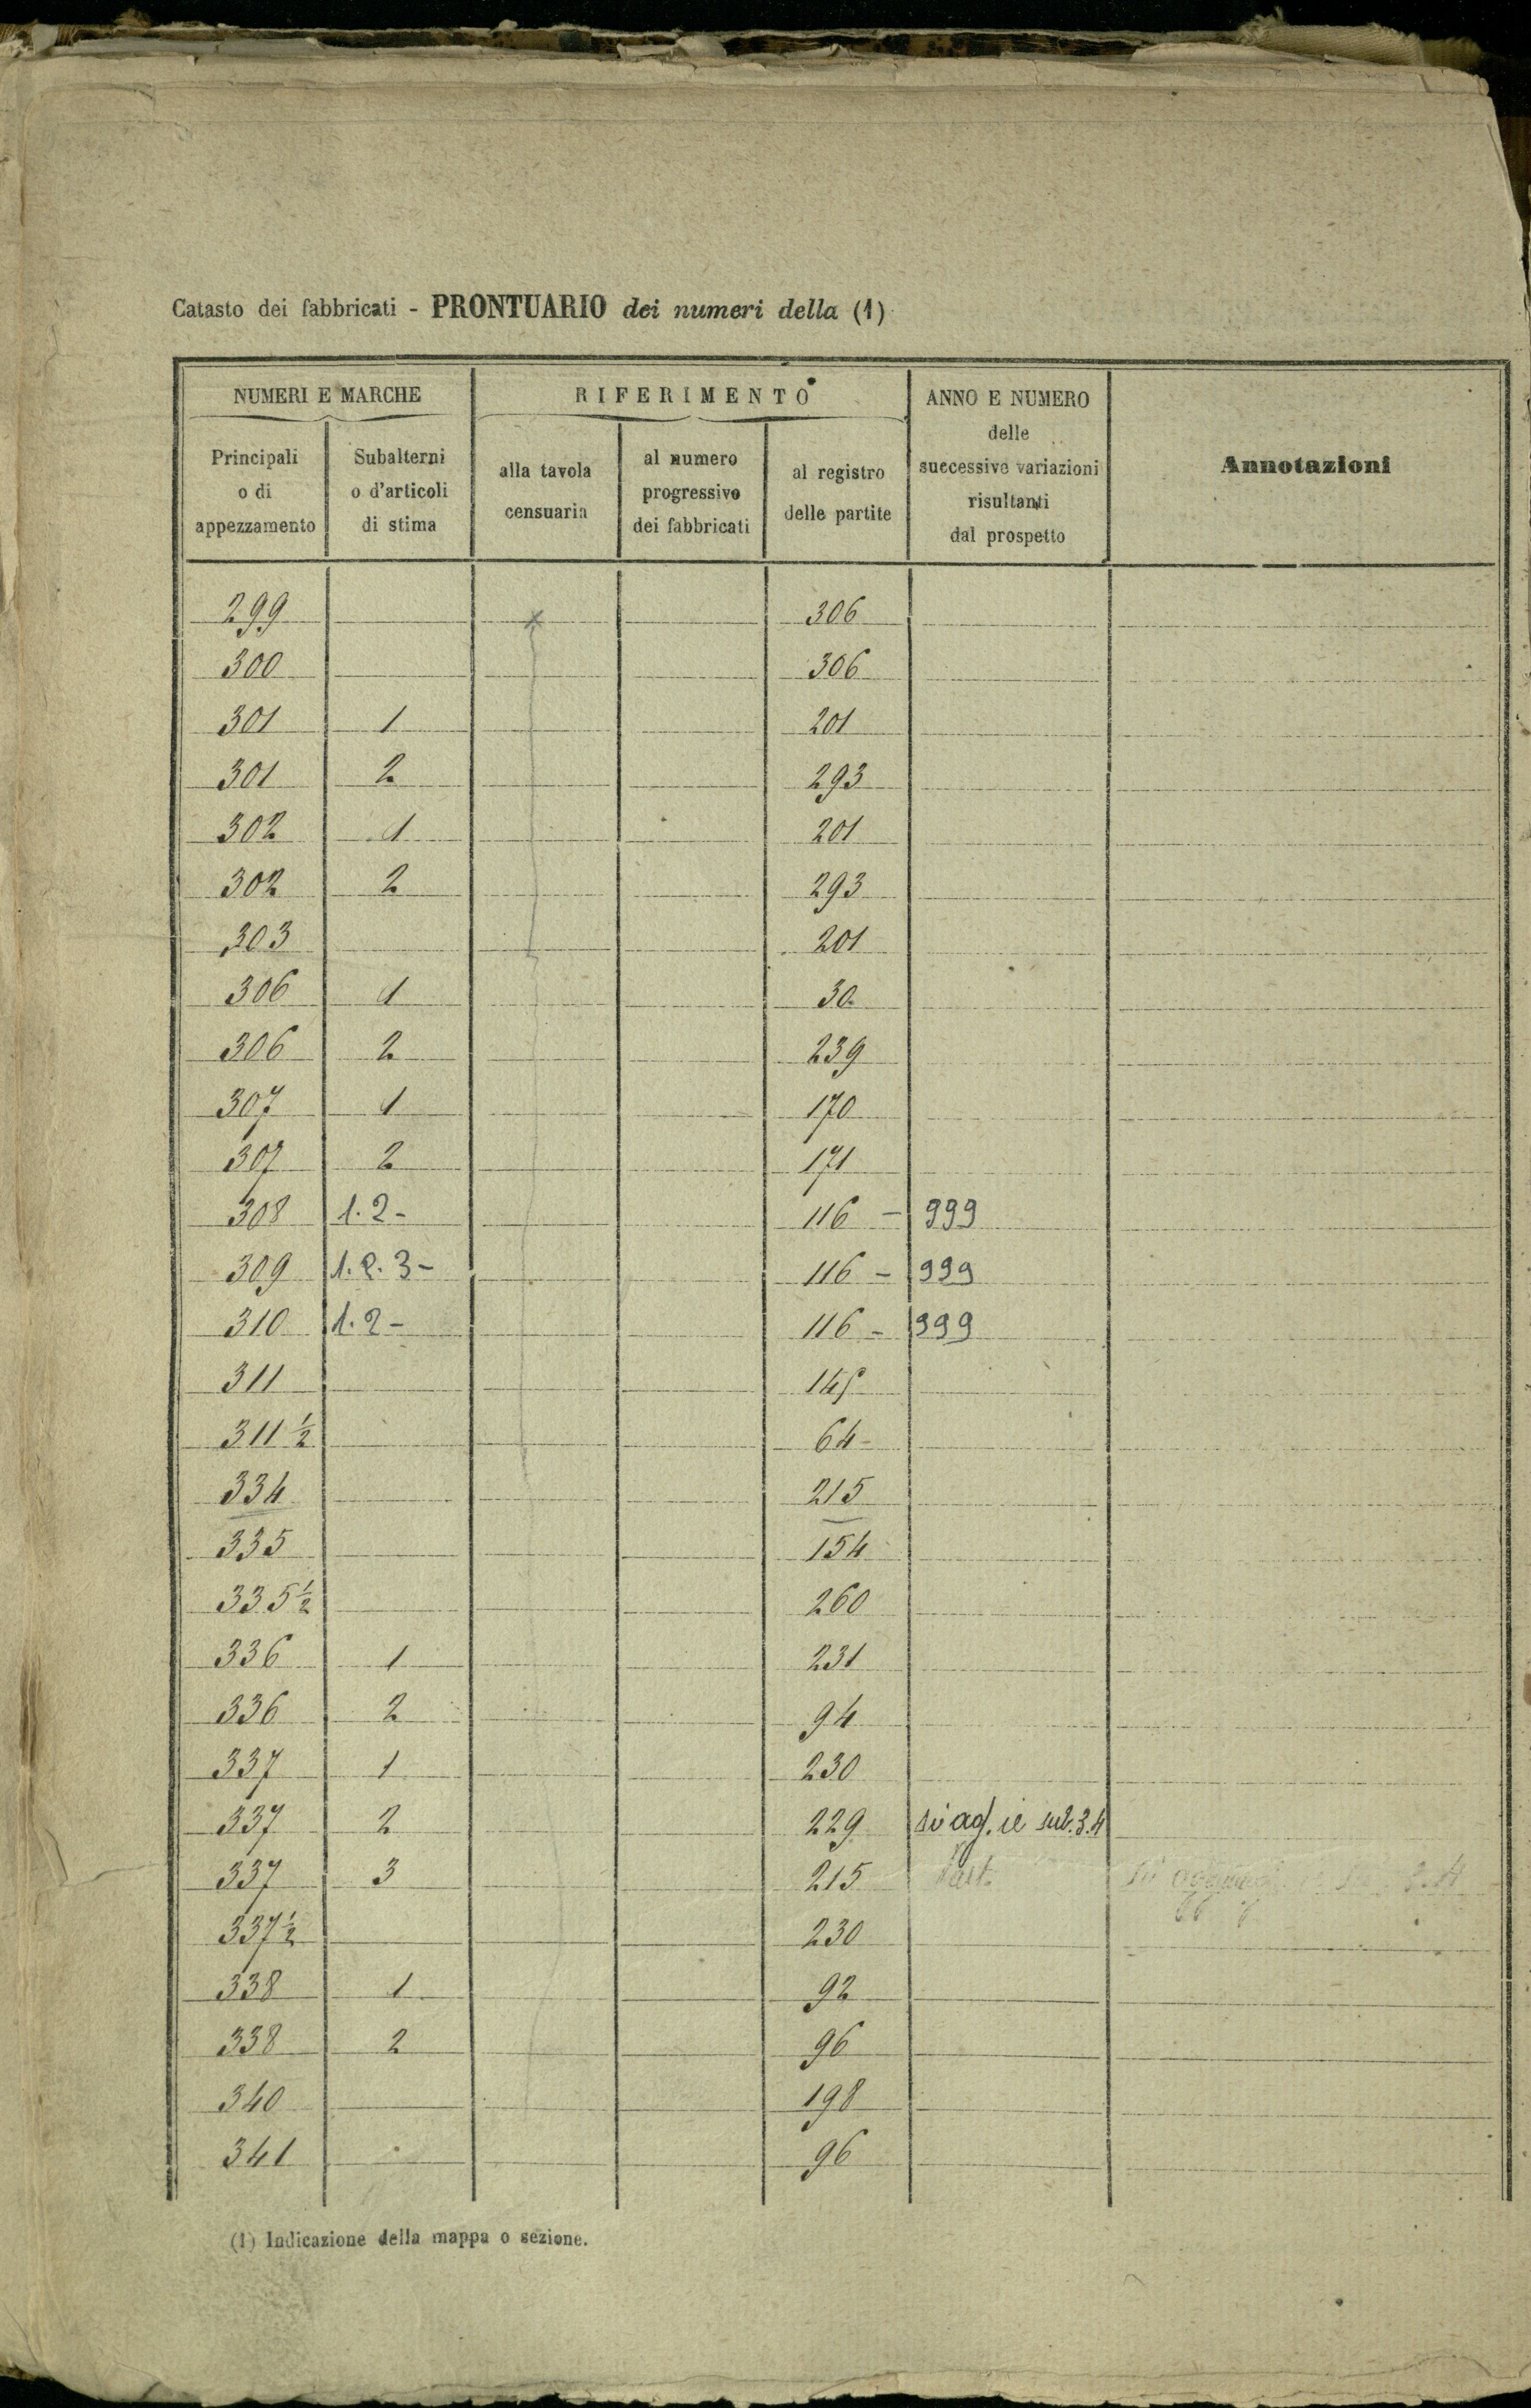 Catasto dei fabbricati - PRONTUARIO dei numeri della (1)
NUMERI E MARCHE
RIFERIMENTO
ANNO E NUMERO
delle
successive variazioni
risultanti
dal prospetto
Annotazioni
Principali
o di
appezzamento
Subalterni
o d'articoli
di stima
alla tavola
censuaria
al numero
progressivo
dei fabbricati
al registro
delle partite
299 306
300 306
301 1 201
301 2 293
302 1 201
302 2 293
303 201
306 1 30
306 2 239
307 1 170
307 2 171
308 1.2- 116 - 999
309 1.2.3- 116 - 999
310 1.2- 116 - 999
311 145
311 ½ 64-
334 215
335 154
335 ½ 260
336 1 231
336 2 94
337 1 230
337 2 229 sub. 3.4
337 3 215
337 ½ 230
338 1 92
338 2 96
340 198
341 96
(1) Indicazione della mappa o sezione.